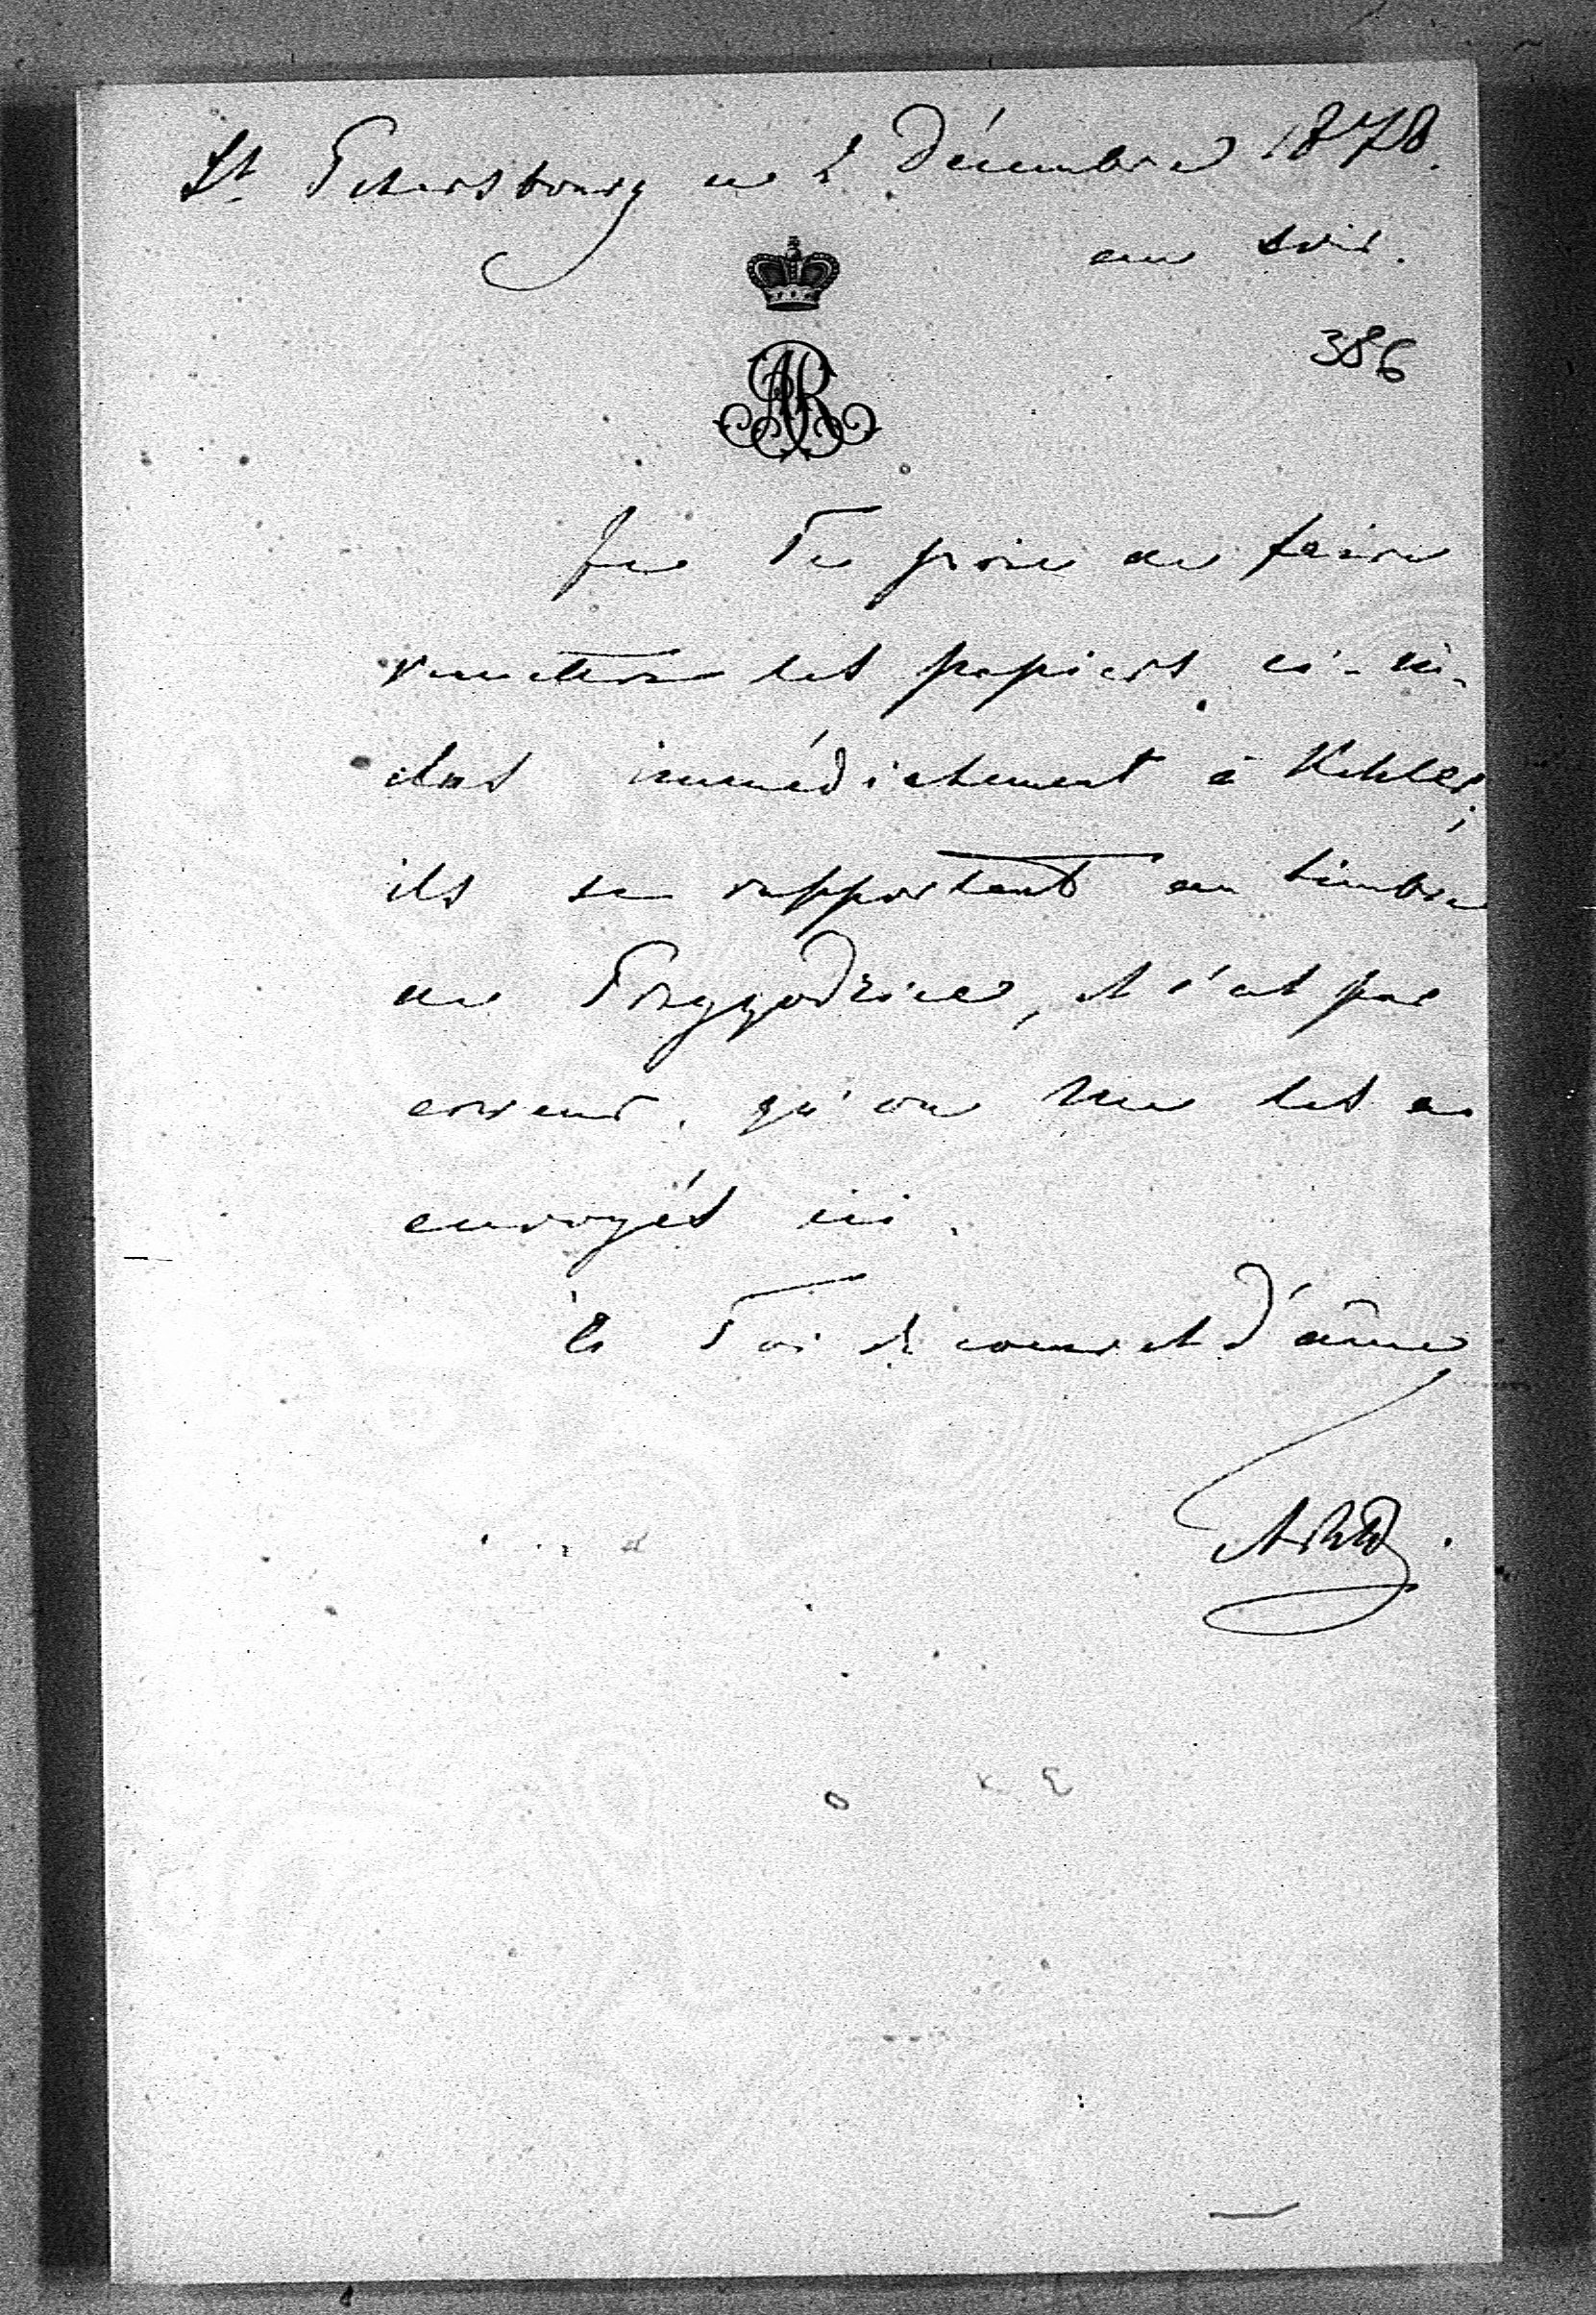 St. Petersbourg ce 2 Décembre 1878.
au soir.
386
AR
Je Te prie de faire
remettre les papiers ci-in-
clus immédiatement à Köhler;
ils se rapportent au timbre
de Przygodzice, et c'est par
erreur, qu'on me les a
envoyés ici.
à Toi de coeur et d'âme